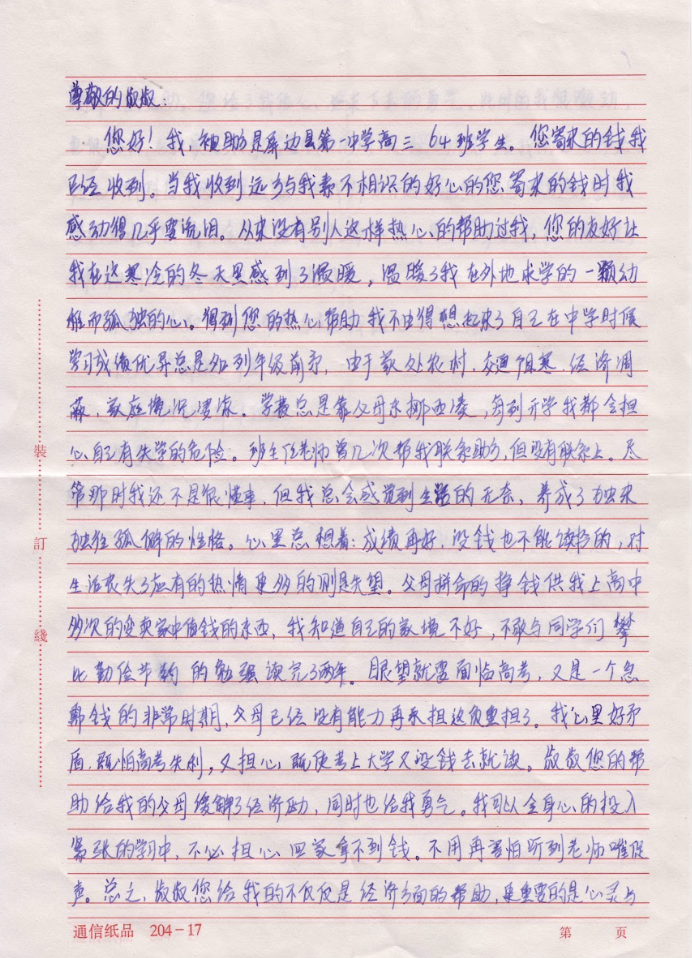 尊敬的敬敬:
您好!我,被助学是屏边县第一中学高三.64班学生。您寄来的钱我
已经收到。当我收到远方与我素不相识的好心的您寄来的钱时我
感动得几乎要流泪。从来没有别人这样热心的帮助过我,您的友好让
我在这寒冷的冬天里感到了温暖,温暖了我在外地求学的一颗幼
稚而孤独的心。得到您的热心帮助我不由得想起来了自己在中学时候
学习成绩优异总是名列年级前茅,由于家处农村,交通阻塞,经济凋
蔽,家庭情况凄凉。学费总是靠父母东挪西凑,每到开学我都会担
心自己有失学的危险。班主任老师曾几次帮我联系助学,但没有联系上。尽
管那时我还不是很懂事,但我总会感觉到生活的无奈,养成了独来
独往孤僻的性格。心里总想着:成绩再好,没钱也不能读书的,对
生活丧失了应有的热情更多的则是失望。父母拼命的挣钱供我上高中
多次的变卖家中值钱的东西,我知道自己的家境不好,不敢与同学们攀
比勤俭节约的勉强读完了两年。眼望就要面临高考,又是一个急
需钱的非常时期,父母已经没有能力再承担这负重担了。我心里好矛
盾,既怕高考失利,又担心既使考上大学又没钱去就读。敬敬您的帮
助给我的父母缓解了经济,同时也给我勇气。我可以全身心的投入
紧张的学习中,不必担心回家拿不到钱。不用再害怕听到老师催促
声。总之,敬敬您给我的不仅仅是经济方面的帮助,更重要的是心灵与
装
訂
綫
通信纸品 204-17
第 页